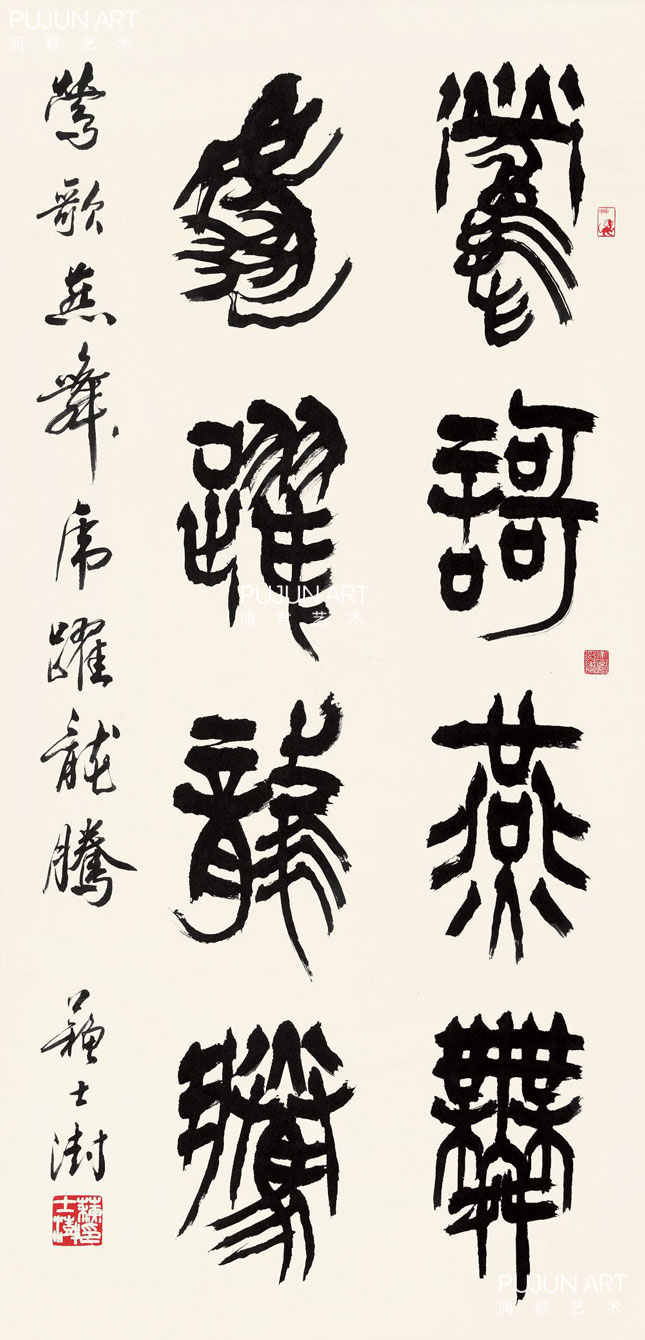 PUJUN ART
浦君艺术
鶯謌燕舞
虎躍龍騰
鶯歌燕舞虎躍龍騰
蘇士澍
PUJUN ART
浦君艺术
PUJUN ART
浦君艺术